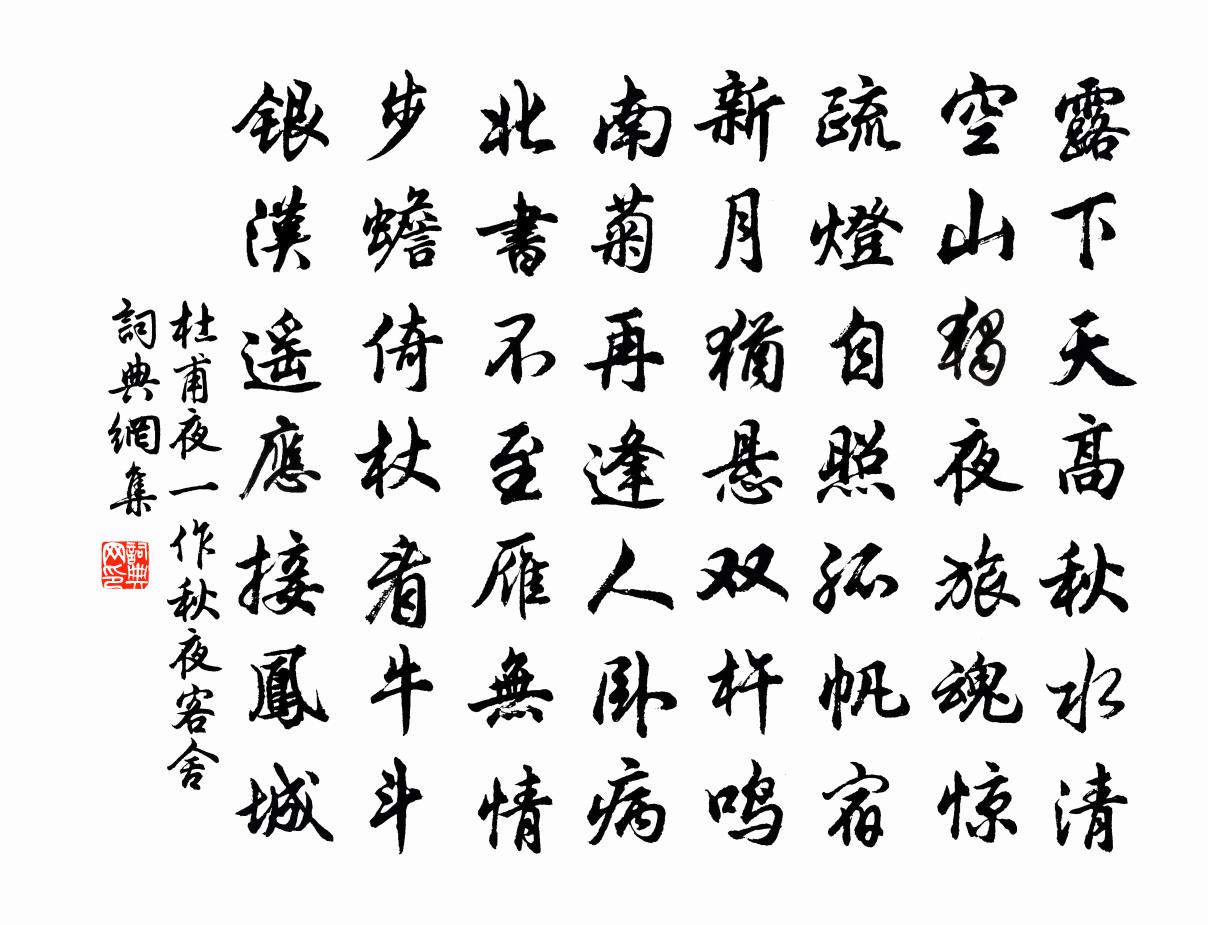 露下天高秋水清
空山獨夜旅魂惊
疏燈自照孤帆宿
新月猶懸双杵鸣
南菊再逢人卧病
北書不至雁無情
步蟾倚杖看牛斗
銀漢遥應接鳳城
杜甫夜一作秋夜客舍
詞典網集
詞典网印